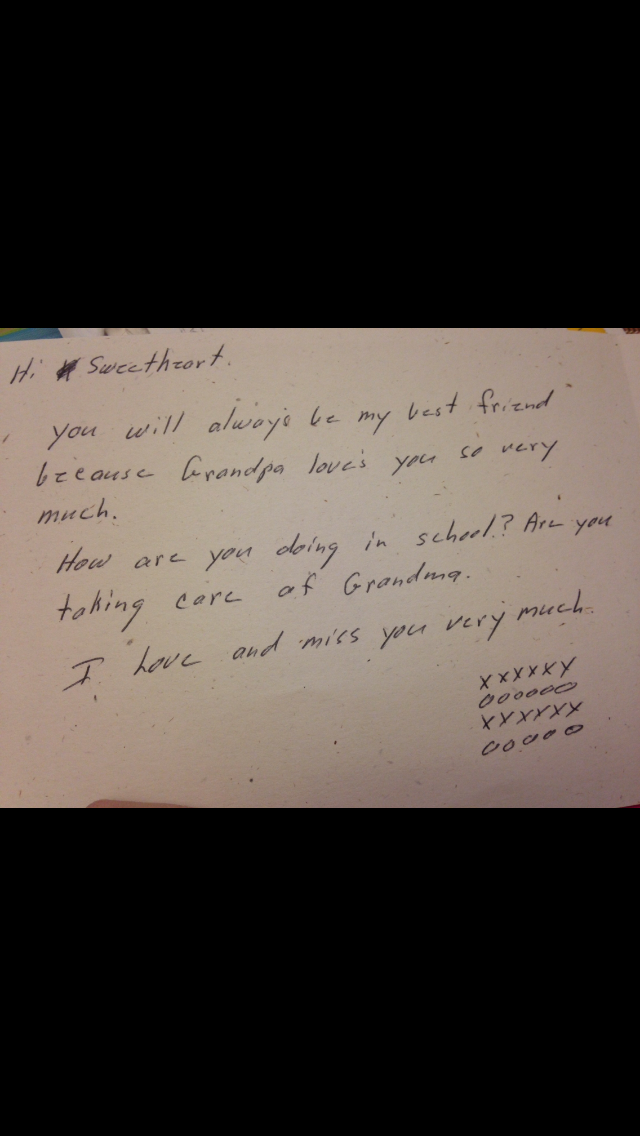 Hi Sweetheart.
you will always be my best friend
because Grandpa love's you so very
much.
How are you doing in school? Are you
taking care of Grandma.
I Love and miss you very much
xxxxxx
oooooo
xxxxxx
ooooo